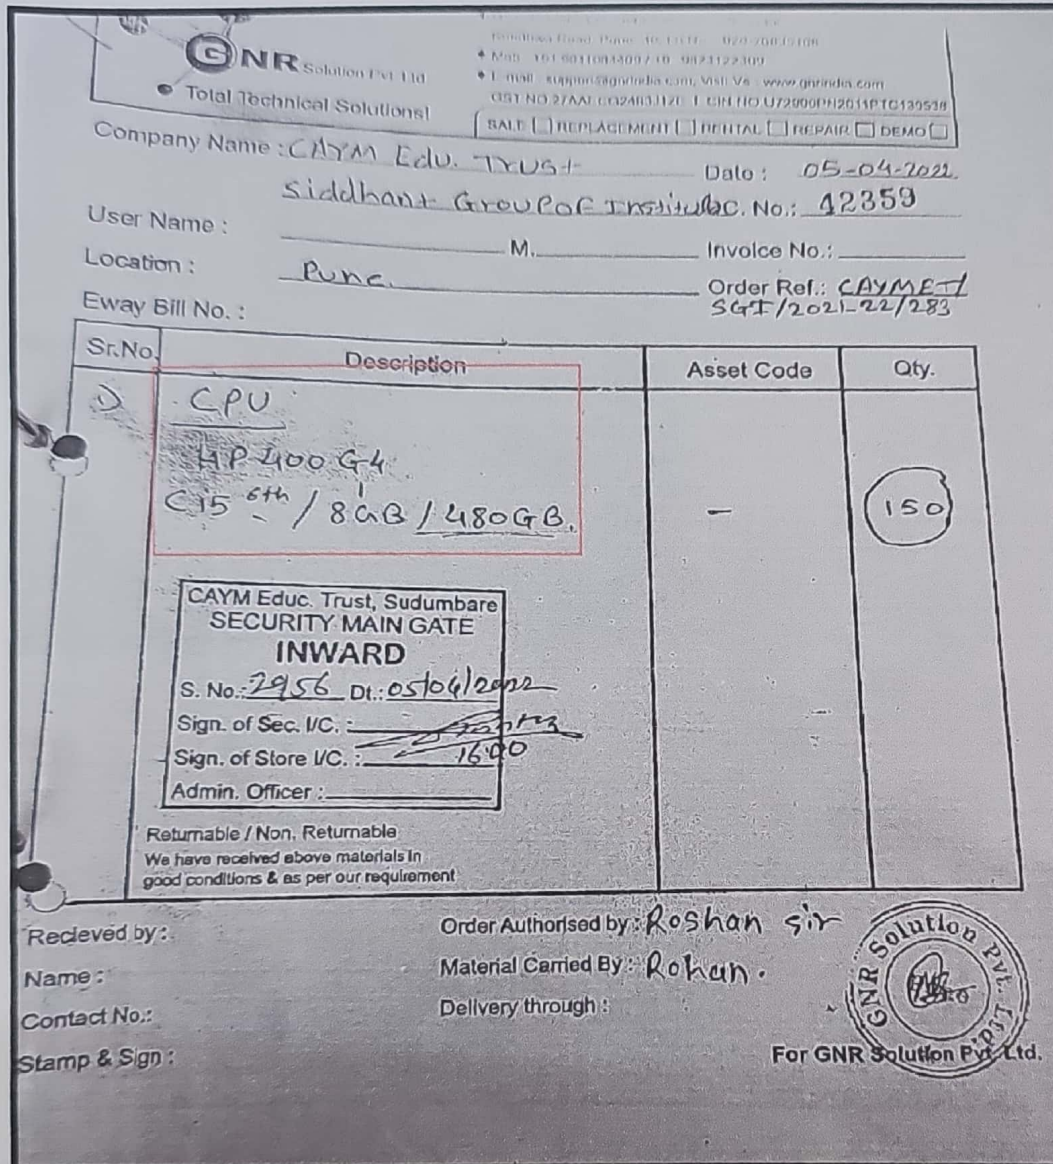 GNR Solution Pvt. Ltd.
Total Technical Solutions!
www.gnrindia.com
SALE REPLACEMENT RENTAL REPAIR DEMO
Company Name : CAYM Edu. Trust
Date : 05-04-2022.
Siddhant Group of Institute
C. No.: 42359
User Name :
M.
Invoice No.:
Location : Pune.
Order Ref.: CAYMET/
SGI/2021-22/283
Eway Bill No. :
Sr.No. Description Asset Code Qty.
1) CPU
HP 400 G4
Ci5 6th / 8GB / 480GB. - 150
CAYM Educ. Trust, Sudumbare
SECURITY MAIN GATE
INWARD
S. No.: 2956 Dt.: 05/04/2022
Sign. of Sec. I/C. :
Sign. of Store I/C. : 16:00
Admin. Officer :
Returnable / Non, Returnable
We have received above materials in
good conditions & as per our requirement
Recieved by :
Order Authorised by : Roshan sir
Name :
Material Carried By : Rohan.
Contact No.:
Delivery through :
Stamp & Sign :
GNR Solution Pvt. Ltd.
For GNR Solution Pvt. Ltd.